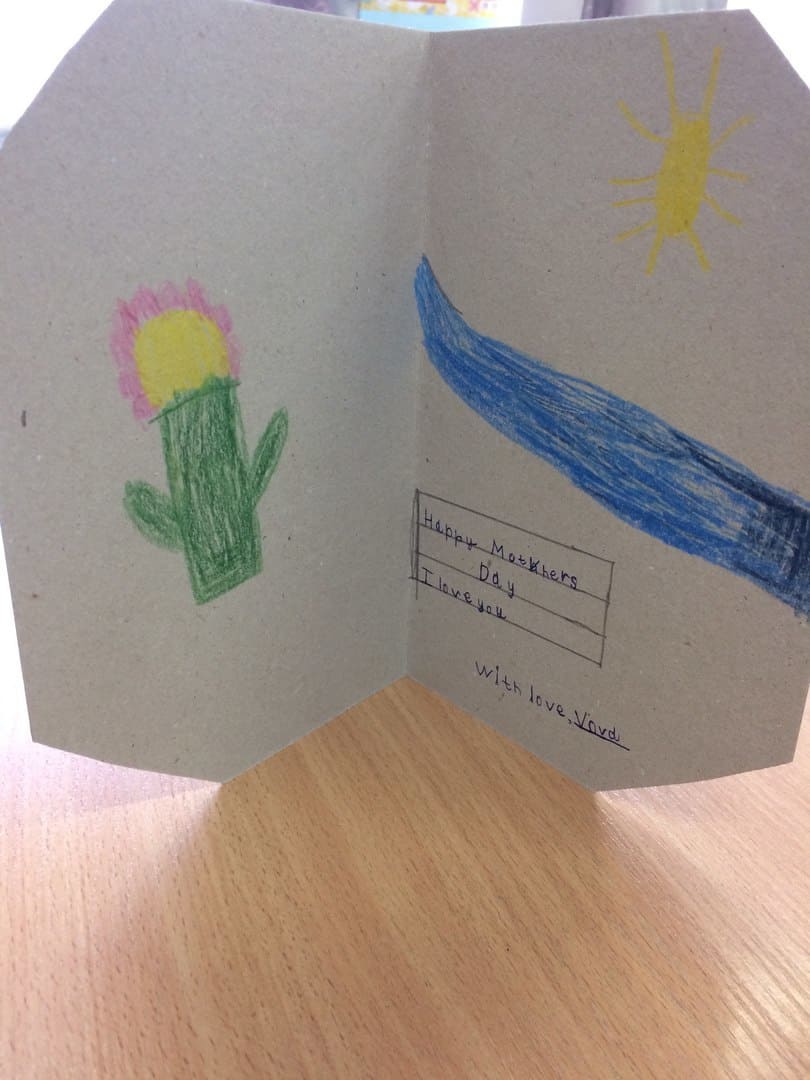 Happy Motkhers
Day
I love you
With love, Vova